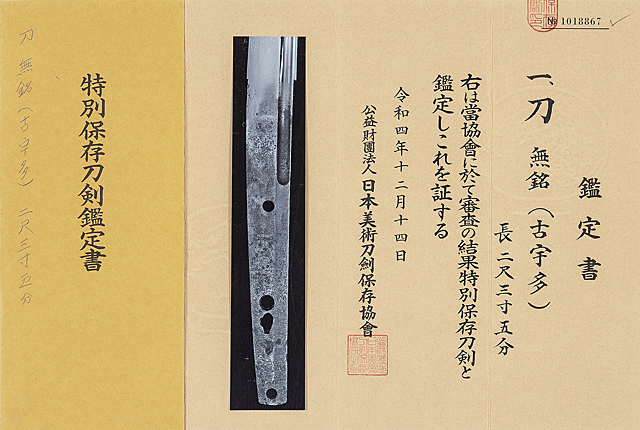 № 1018867
鑑定書
一、刀 無銘（古宇多）
長二尺三寸五分
右は當協會に於て審査の結果特別保存刀剣と
鑑定しこれを証する
令和四年十二月十四日
公益財團法人 日本美術刀剣保存協會
特別保存刀剣鑑定書
刀 無銘（古宇多） 二尺三寸五分